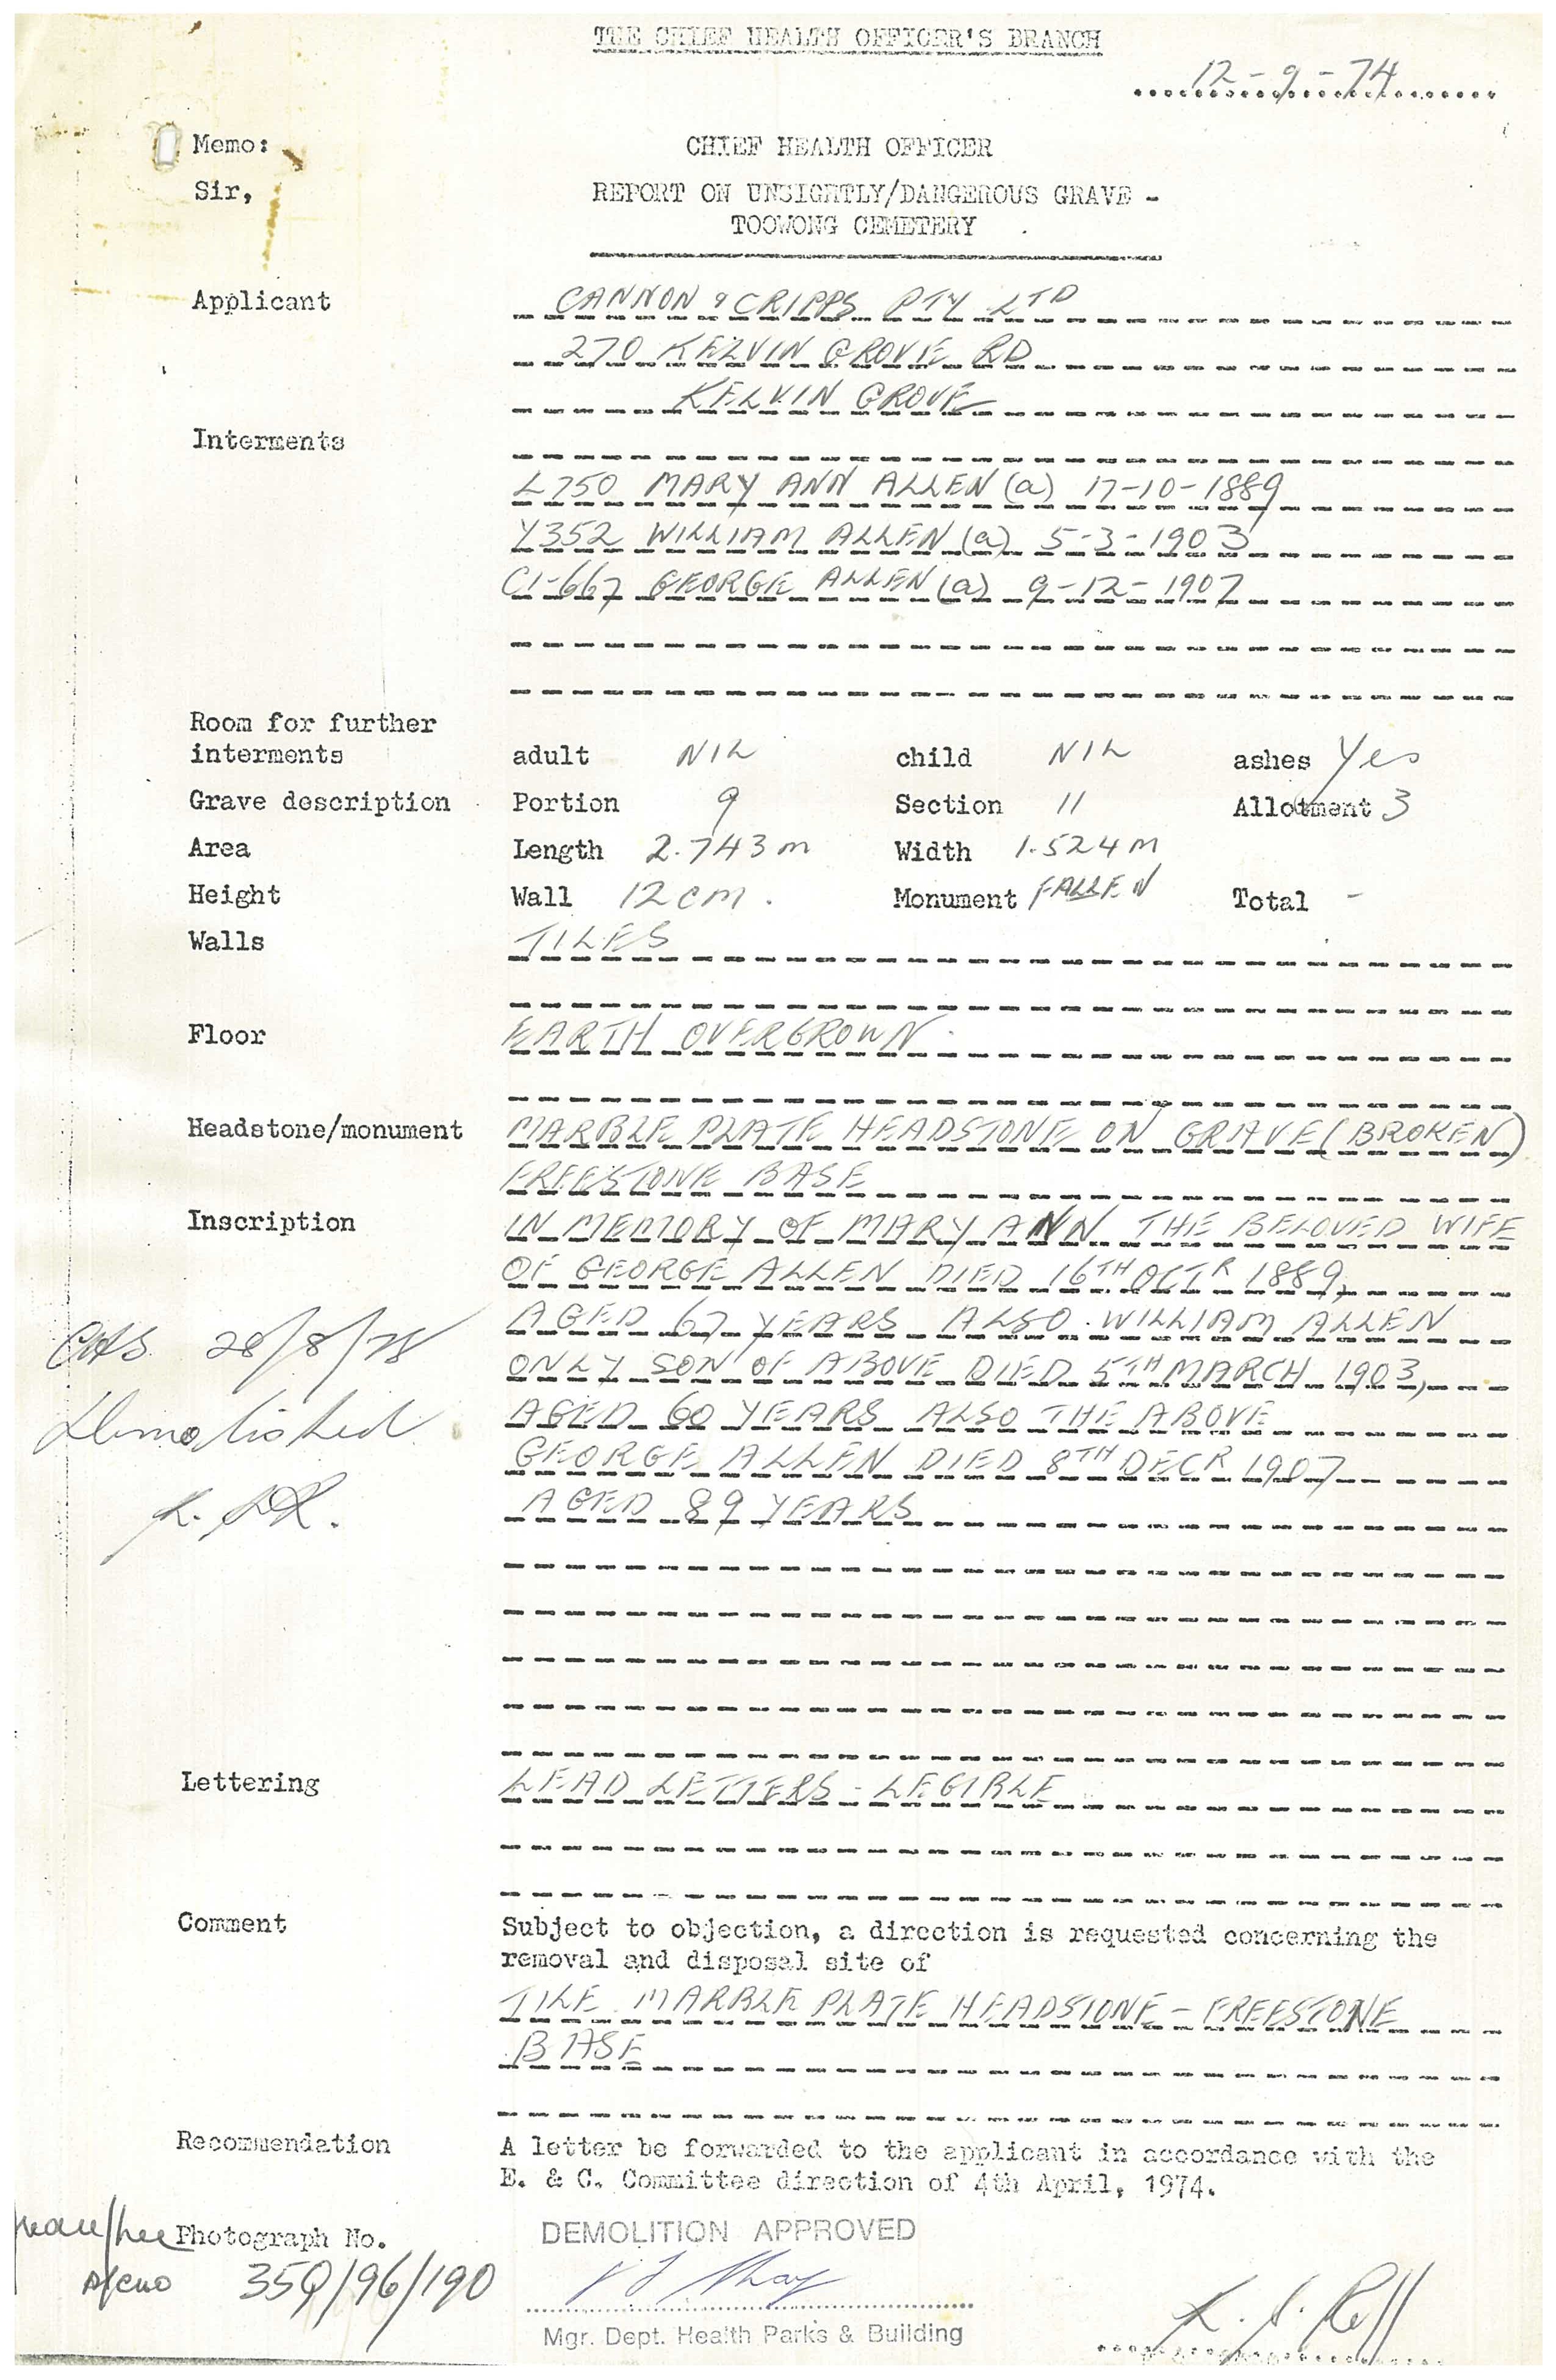 THE CHIEF HEALTH OFFICER'S BRANCH
12-9-74
Memo:
CHIEF HEALTH OFFICER
Sir,
REPORT ON UNSIGHTLY/DANGEROUS GRAVE -
TOOWONG CEMETERY
Applicant CANNON & CRIPPS PTY LTD
270 KELVIN GROVE RD
KELVIN GROVE
Interments
L750 MARY ANN ALLEN (a) 17-10-1889
Y352 WILLIAM ALLEN (a) 5-3-1903
C1-667 GEORGE ALLEN (a) 9-12-1907
Room for further
interments adult NIL child NIL ashes Yes
Grave description Portion 9 Section 11 Allotment 3
Area Length 2.743m Width 1.524m
Height Wall 12cm. Monument FALLEN Total -
Walls TILES
Floor EARTH OVERGROWN
Headstone/monument MARBLE PLATE HEADSTONE ON GRAVE (BROKEN)
FREESTONE BASE
Inscription IN MEMORY OF MARY ANN THE BELOVED WIFE
OF GEORGE ALLEN DIED 16TH OCTR 1889,
AGED 67 YEARS ALSO WILLIAM ALLEN
ONLY SON OF ABOVE DIED 5TH MARCH 1903,
AGED 60 YEARS ALSO THE ABOVE
GEORGE ALLEN DIED 8TH DECR 1907
AGED 89 YEARS
28/8/78
Demolished
Lettering LEAD LETTERS - LEGIBLE
Comment Subject to objection, a direction is requested concerning the
removal and disposal site of
TILE MARBLE PLATE HEADSTONE - FREESTONE
BASE
Recommendation A letter be forwarded to the applicant in accordance with the
E. & C. Committee direction of 4th April, 1974.
Photograph No. DEMOLITION APPROVED
359/96/190
Mgr. Dept. Health Parks & Building